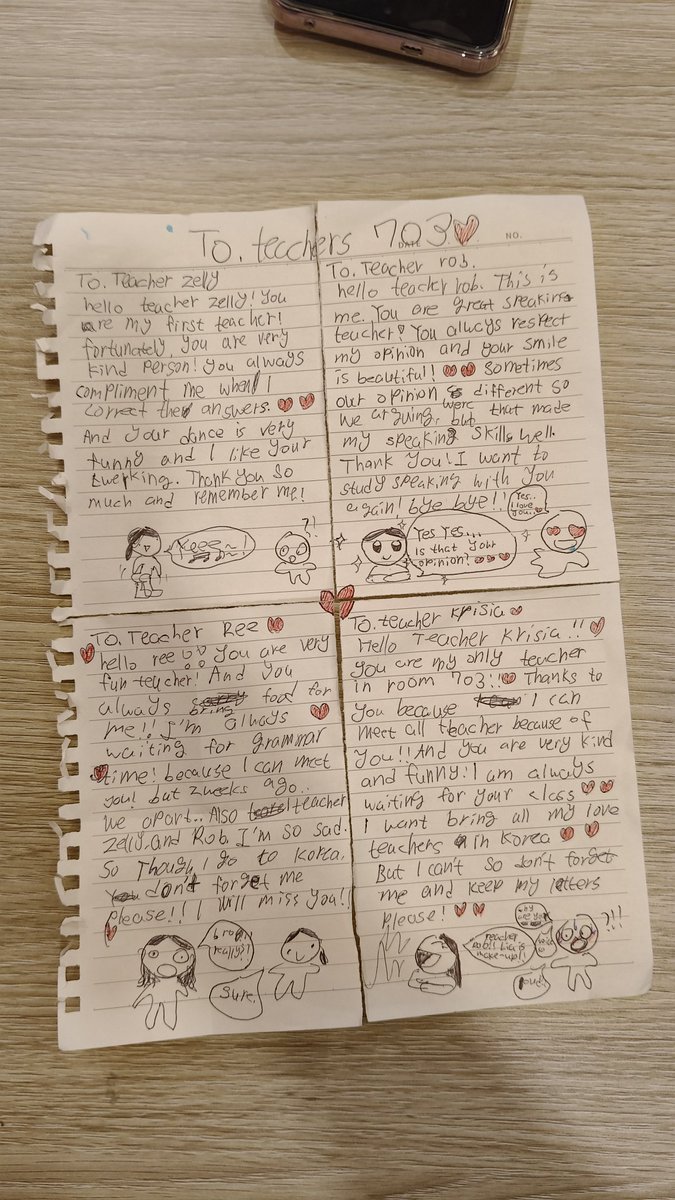 To. teachers 703
DATE
NO.
To. Teacher zelly
hello teacher zelly! you
are my first teacher!
fortunately, you are very
kind person! you always
compliment me when I
correct the answers.
And your dance is very
funny and I like your
twerking. Thank you so
much and remember me!
Keee~!
?!
To. Teacher rob.
hello teacher rob. This is
me. You are great speaking
teacher! You always respect
my opinion and your smile
is beautiful! sometimes
our opinion is different so
we arguing. were but that made
my speaking skills well.
Thank you! I want to
study speaking with you
again! bye bye!!
Yes..
I love
you..
Yes Yes...
is that your
opinion?
To. Teacher Ree
hello ree!! You are very
fun teacher! And you
always bring food for
me!! I'm always
waiting for grammar
time! because I can meet
you! but 2weeks ago..
we apart.. Also teacher
zelly. and Rob. I'm so sad.
So Though, I go to Korea.
don't forget me
please!! I will miss you!!
bro..
really?!
Sure.
To. teacher Krisia
Hello Teacher Krisia!!
you are my only teacher
in room 703!! Thanks to
you because I can
meet all teacher because of
you!! And you are very kind
and funny! I am always
waiting for your class
I want bring all my love
teachers in Korea
But I can't so don't forget
me and keep my letters
please!
teacher
make-up!!
?!!